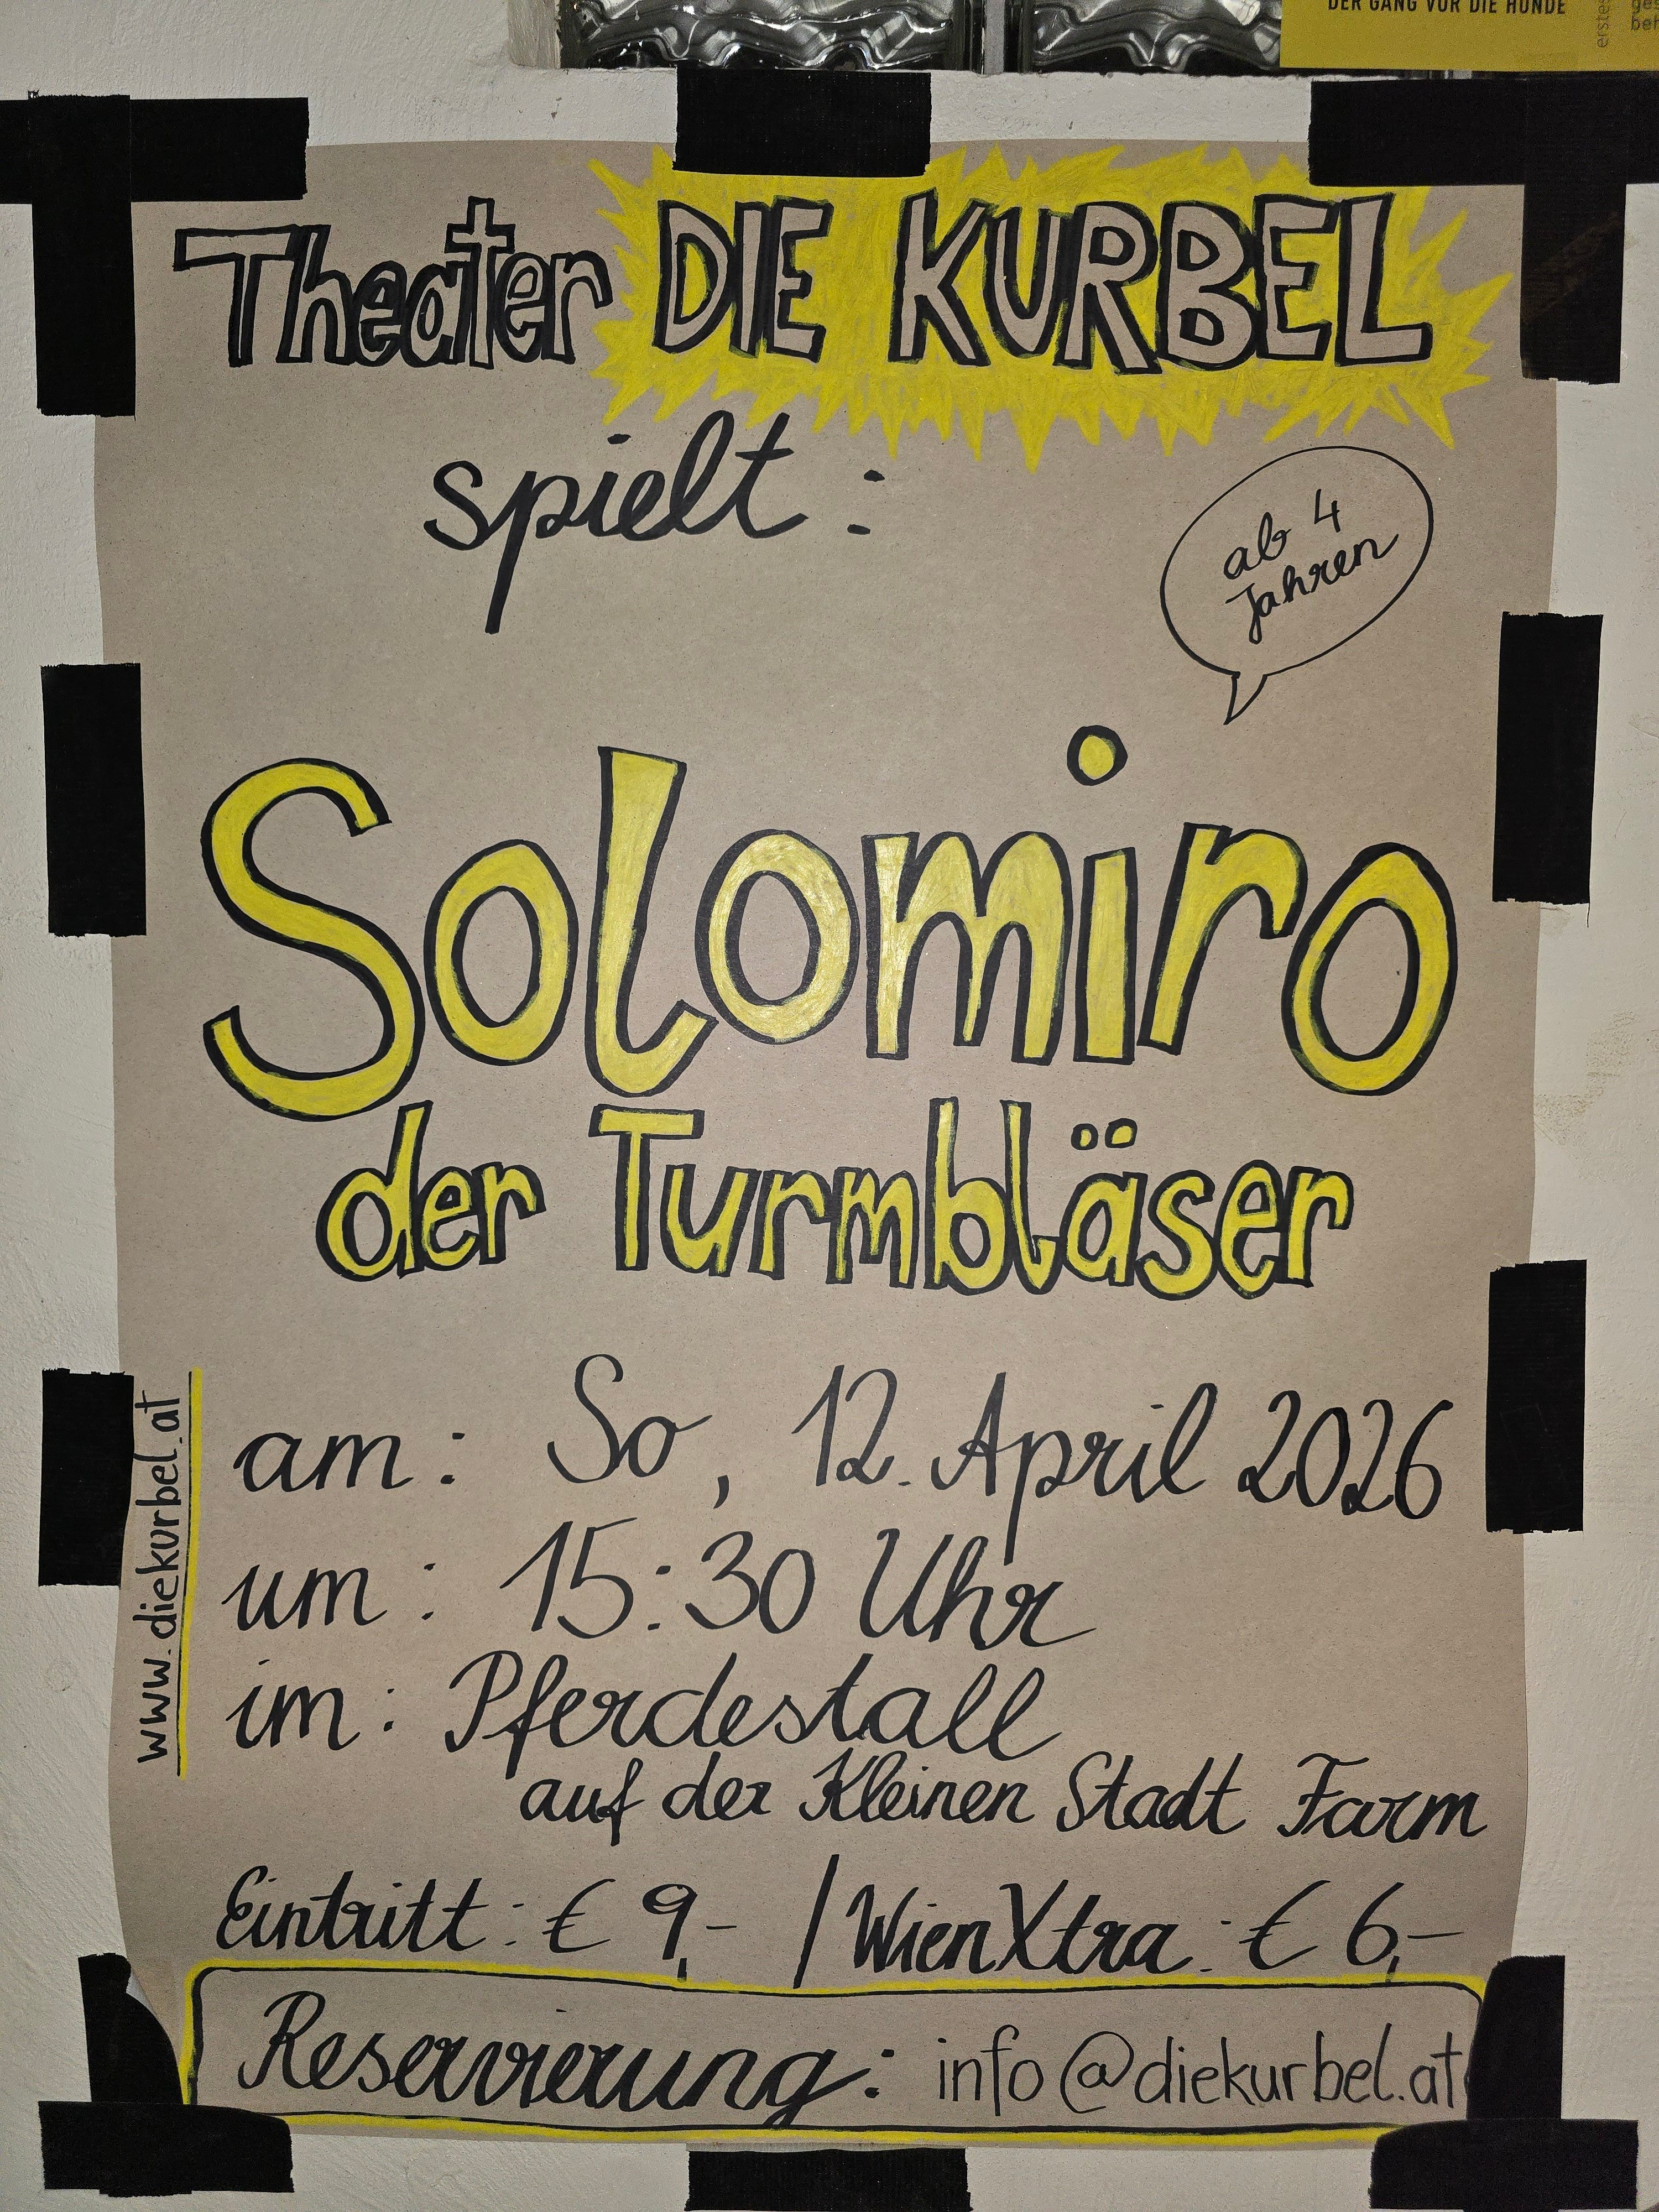 DER GANG VOR DIE HUNDE
erstes
Theater DIE KURBEL
spielt :
ab 4
Jahren
Solomiro
der Turmbläser
www.diekurbel.at
am : So, 12. April 2026
um : 15:30 Uhr
im : Pferdestall
auf der Kleinen Stadt Farm
Eintritt : € 9,- / WienXtra : € 6,-
Reservierung : info@diekurbel.at